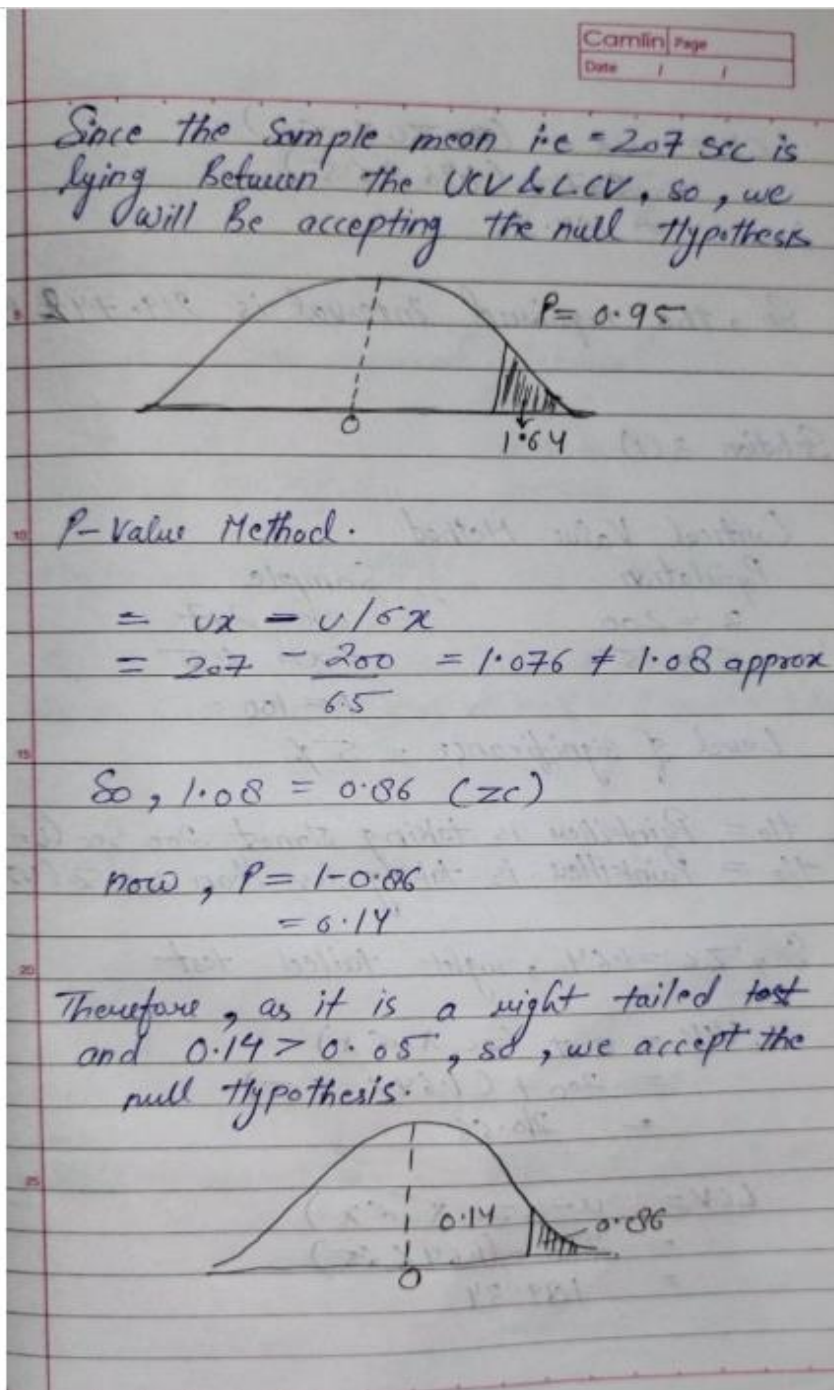 Camlin Page
Date / /
Since the Sample mean i.e = 207 sec is
lying Between the UCV & LCV, so, we
will Be accepting the null Hypothesis
P = 0.95
0
1.64
P-Value Method.
= ux - u/σx
= 207 - 200 = 1.076 ≠ 1.08 approx
6.5
So, 1.08 = 0.86 (zc)
now, P = 1-0.86
= 0.14
Therefore, as it is a right tailed test
and 0.14 > 0.05, so, we accept the
null Hypothesis.
0.14 0.086
0
10
15
20
25